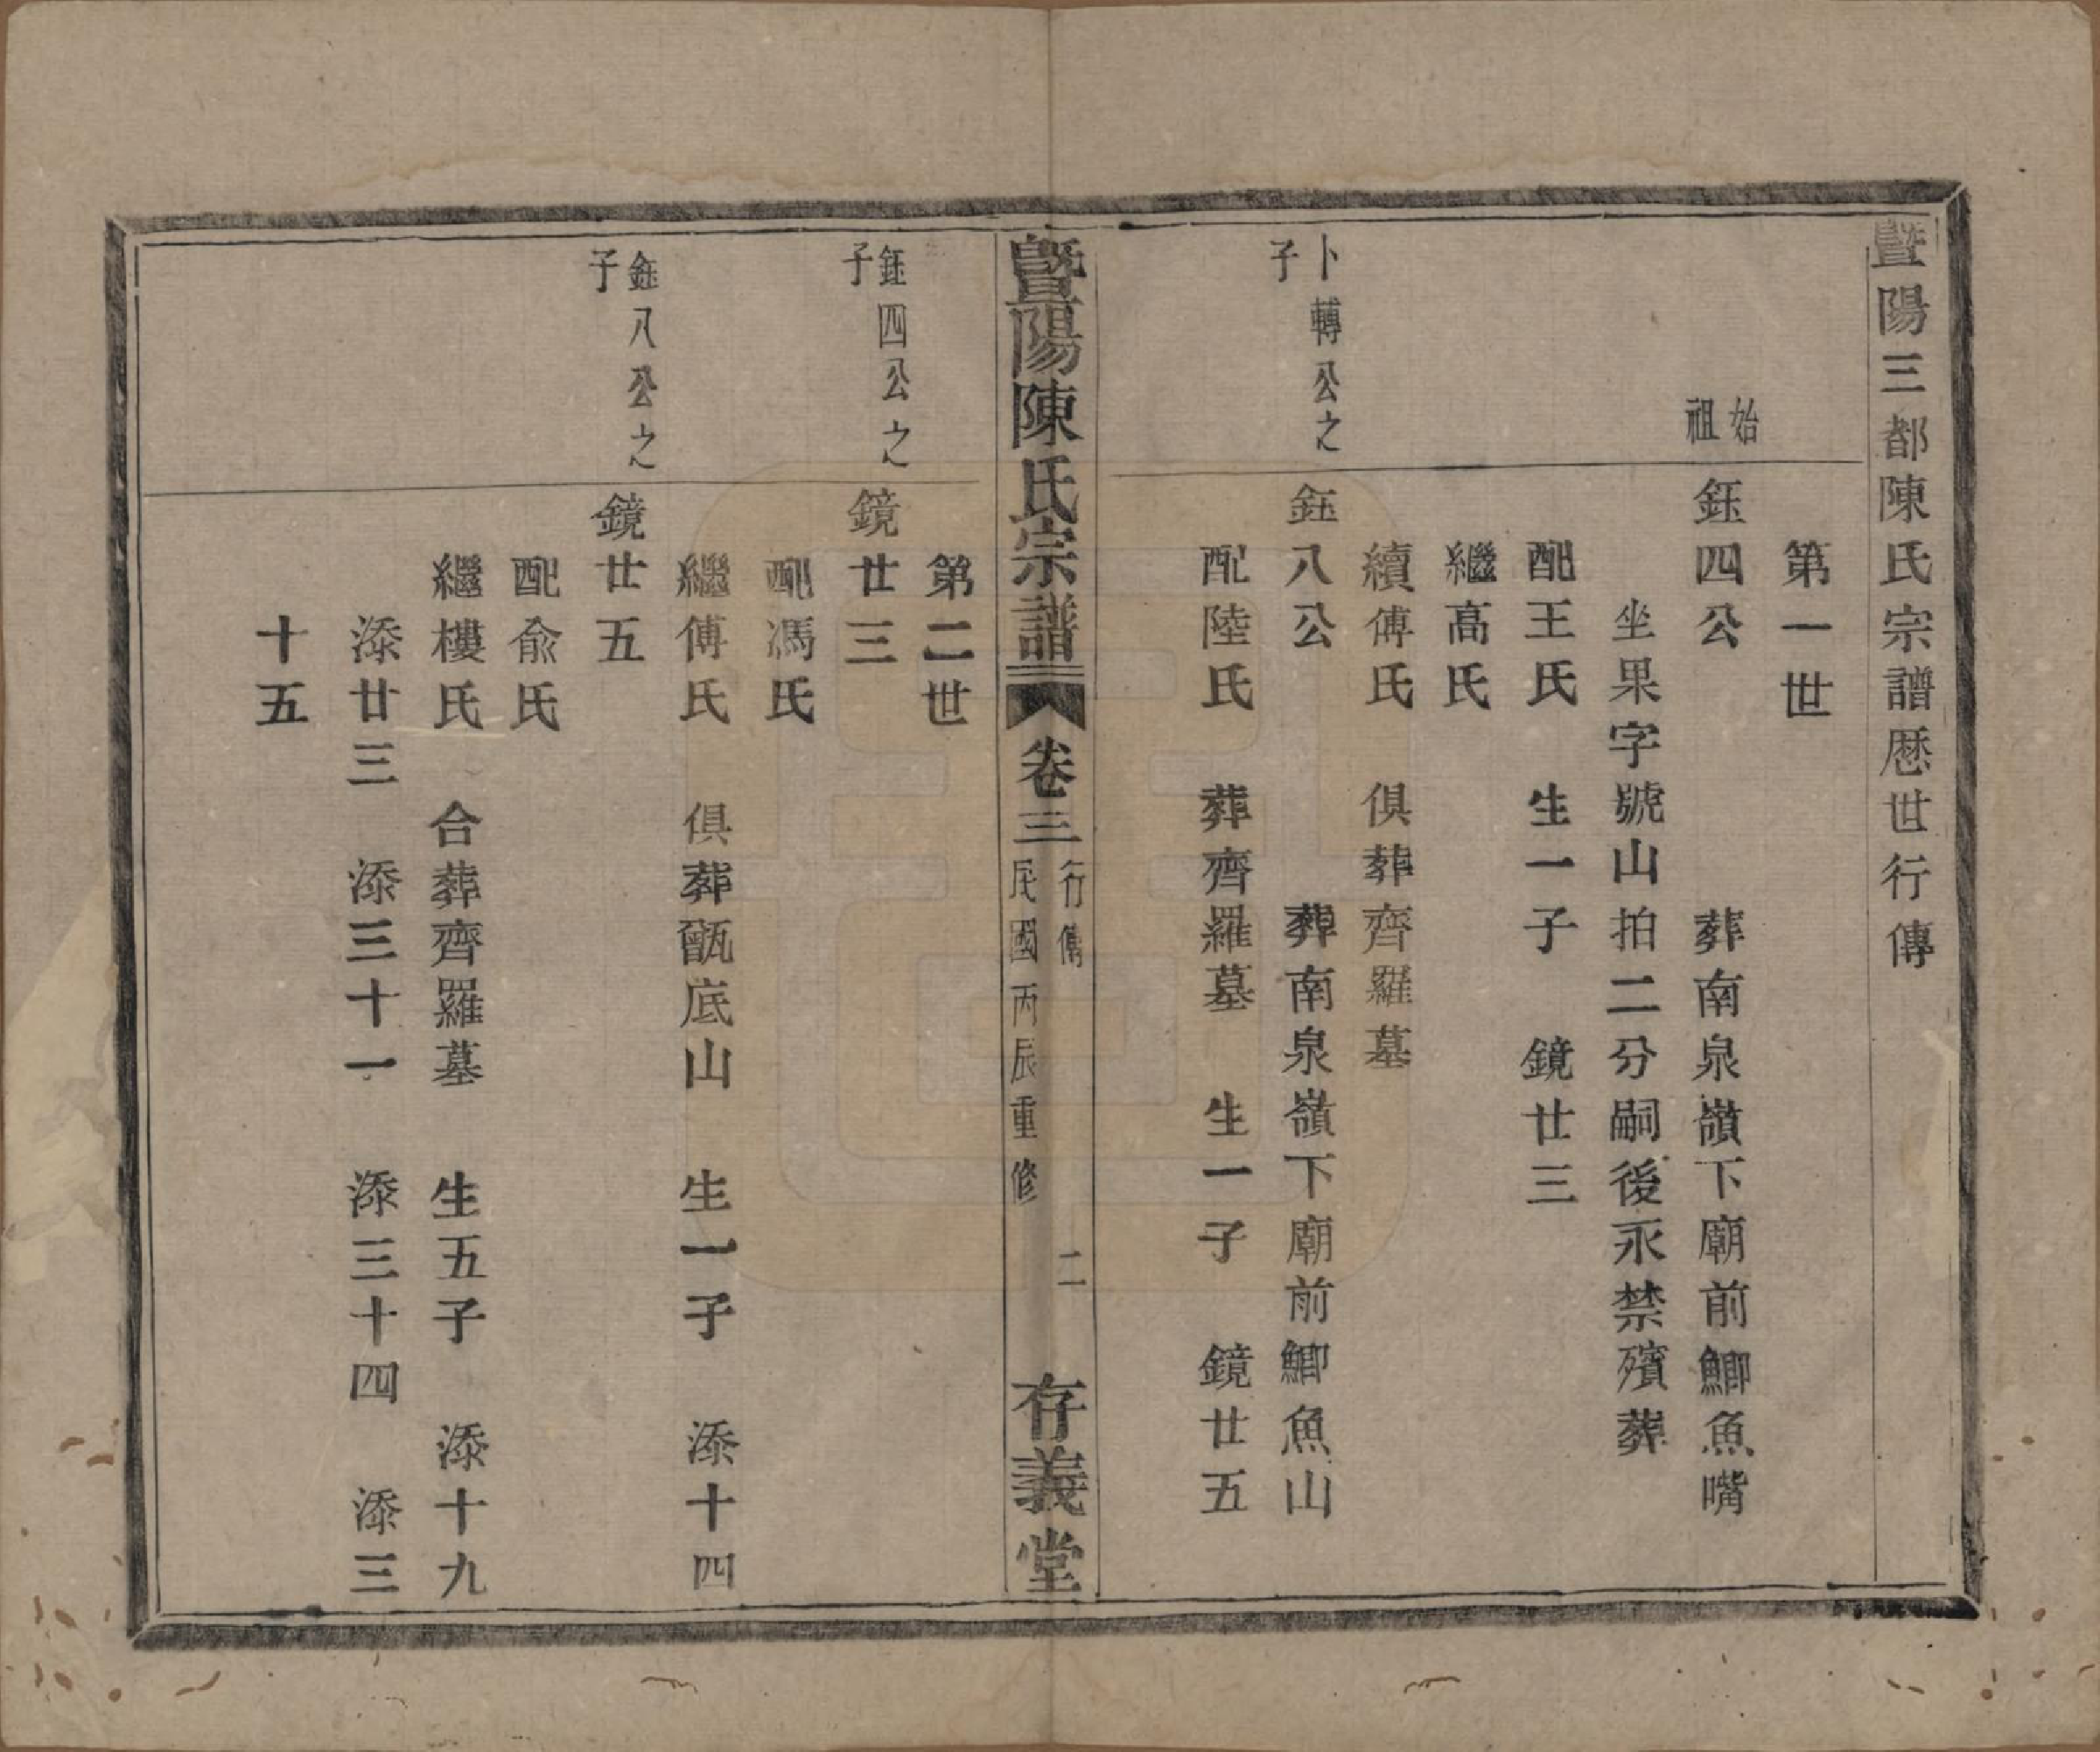 暨陽三都陳氏宗譜厯世行傳
第一世
始祖
鈺四公　葬南泉嶺下廟前鯽魚嘴
坐果字號山拍二分嗣後永禁殯葬
配王氏　生一子　鏡廿三
繼高氏
續傅氏　俱葬齊羅墓
卜轉公之子
鈺八公　葬南泉嶺下廟前鯽魚山
配陸氏　葬齊羅墓　生一子　鏡廿五
暨陽陳氏宗譜　卷三　行傳　民國丙辰重修　二　存義堂
第二世
鈺四公之子
鏡廿三
配馮氏
繼傅氏　俱葬甑底山　生一子　添十四
鈺八公之子
鏡廿五
配兪氏
繼樓氏　合葬齊羅墓　生五子　添十九
添廿三　添三十一　添三十四　添三
十五